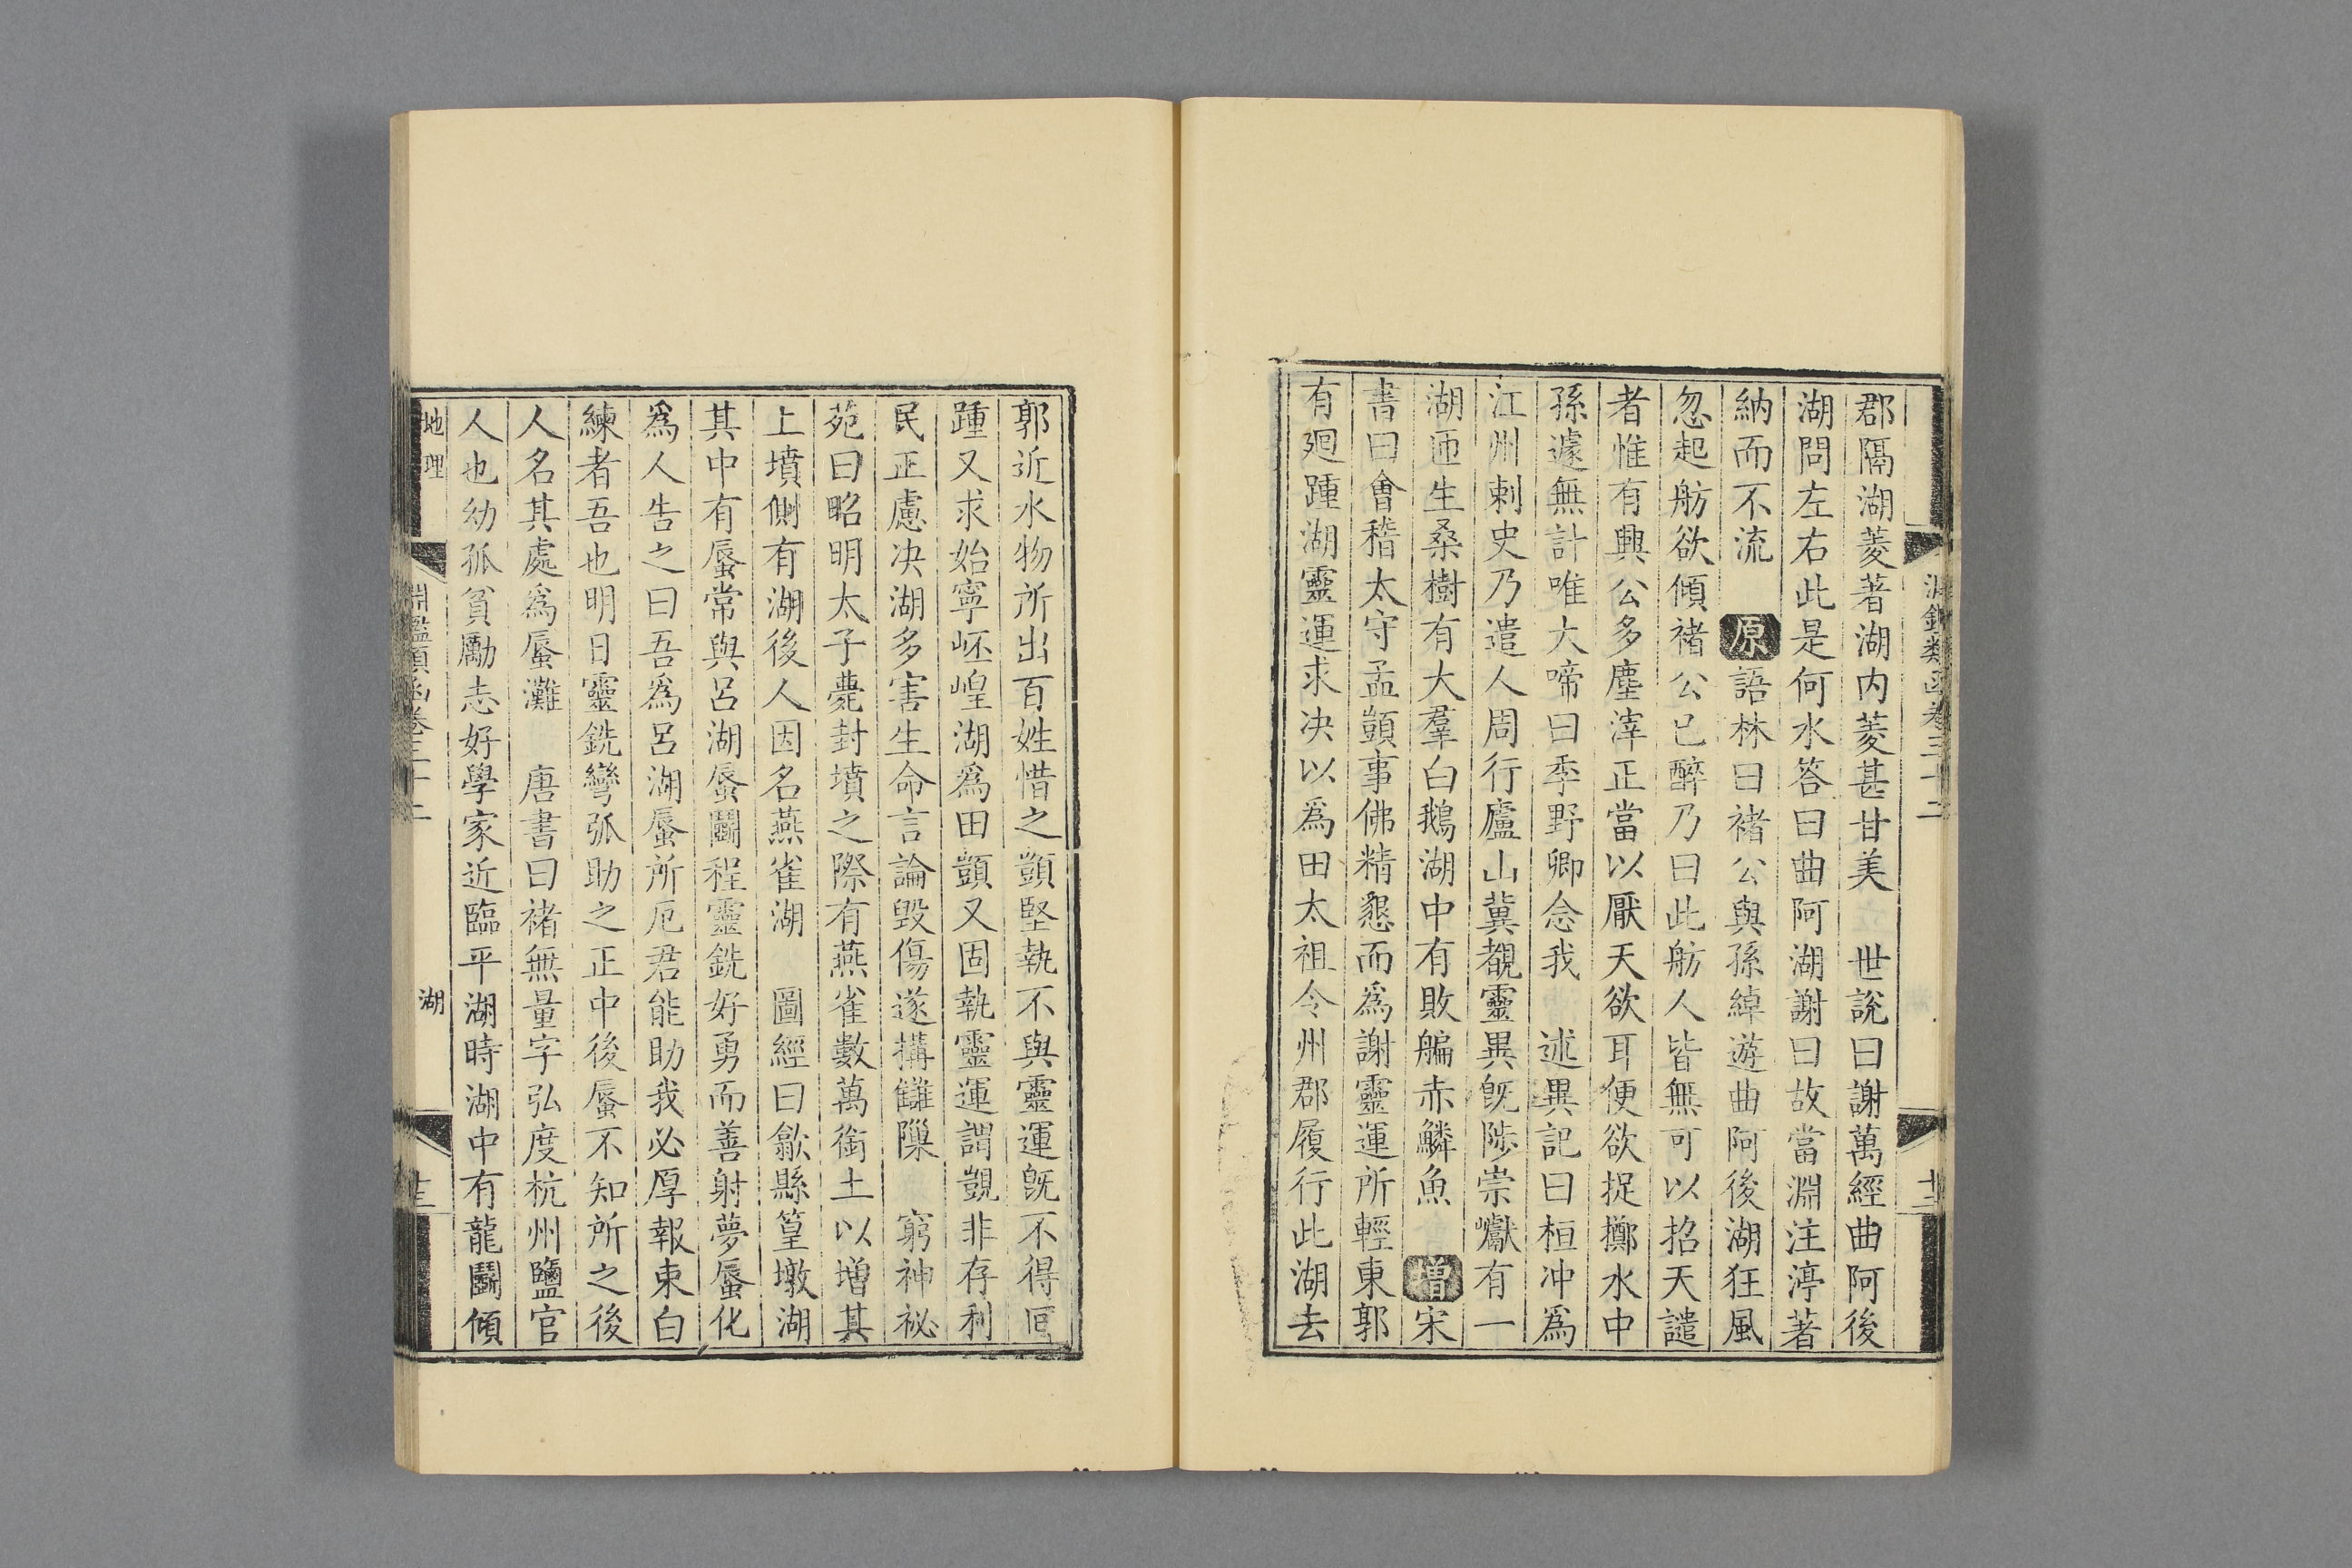 郡隔湖菱著湖内菱甚甘美　世説曰謝萬經曲阿後
湖問左右此是何水答曰曲阿湖謝曰故當淵注渟著
納而不流　原語林曰褚公與孫綽遊曲阿後湖狂風
忽起舫欲傾褚公已醉乃曰此舫人皆無可以招天譴
者惟有興公多塵滓正當以厭天欲耳便欲捉擲水中
孫遽無計唯大啼曰季野卿念我　述異記曰桓冲爲
江州刺史乃遣人周行廬山冀覩靈異旣陟崇巘有一
湖匝生桑樹有大羣白鵝湖中有敗艑赤鱗魚　增宋
書曰會稽太守孟顗事佛精懇而爲謝靈運所輕東郭
有廻踵湖靈運求决以爲田太祖令州郡履行此湖去
淵鑑類函卷三十二
郭近水物所出百姓惜之顗堅執不與靈運旣不得囬
踵又求始寧岯崲湖爲田顗又固執靈運謂顗非存利
民正慮决湖多害生命言論毀傷遂搆讎隟　窮神祕
苑曰昭明太子薨封墳之際有燕雀數萬銜土以增其
上墳側有湖後人因名燕雀湖　圖經曰歙縣篁墩湖
其中有蜃常與呂湖蜃鬭程靈銑好勇而善射夢蜃化
爲人告之曰吾爲呂湖蜃所厄君能助我必厚報束白
練者吾也明日靈銑彎弧助之正中後蜃不知所之後
人名其處爲蜃灘　唐書曰褚無量字弘度杭州鹽官
人也幼孤貧勵志好學家近臨平湖時湖中有龍鬭傾
地理　淵鑑類函卷三十二　湖